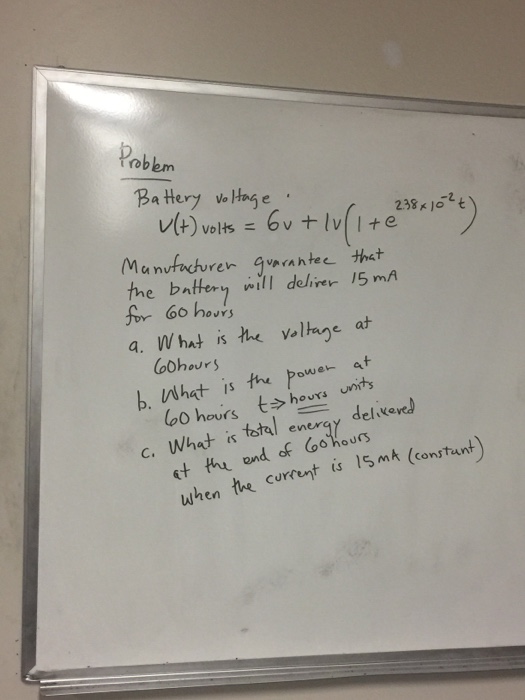 Problem
Battery voltage
V(t) volts = 6v + 1v(1+e^{2.38×10^{-2}t})
Manufacturer guarantee that
the battery will deliver 15 mA
for 60 hours
a. What is the voltage at
60hours
b. What is the power at
60 hours t⇒hours units
c. What is total energy delivered
at the end of 60hours
when the current is 15mA (constant)